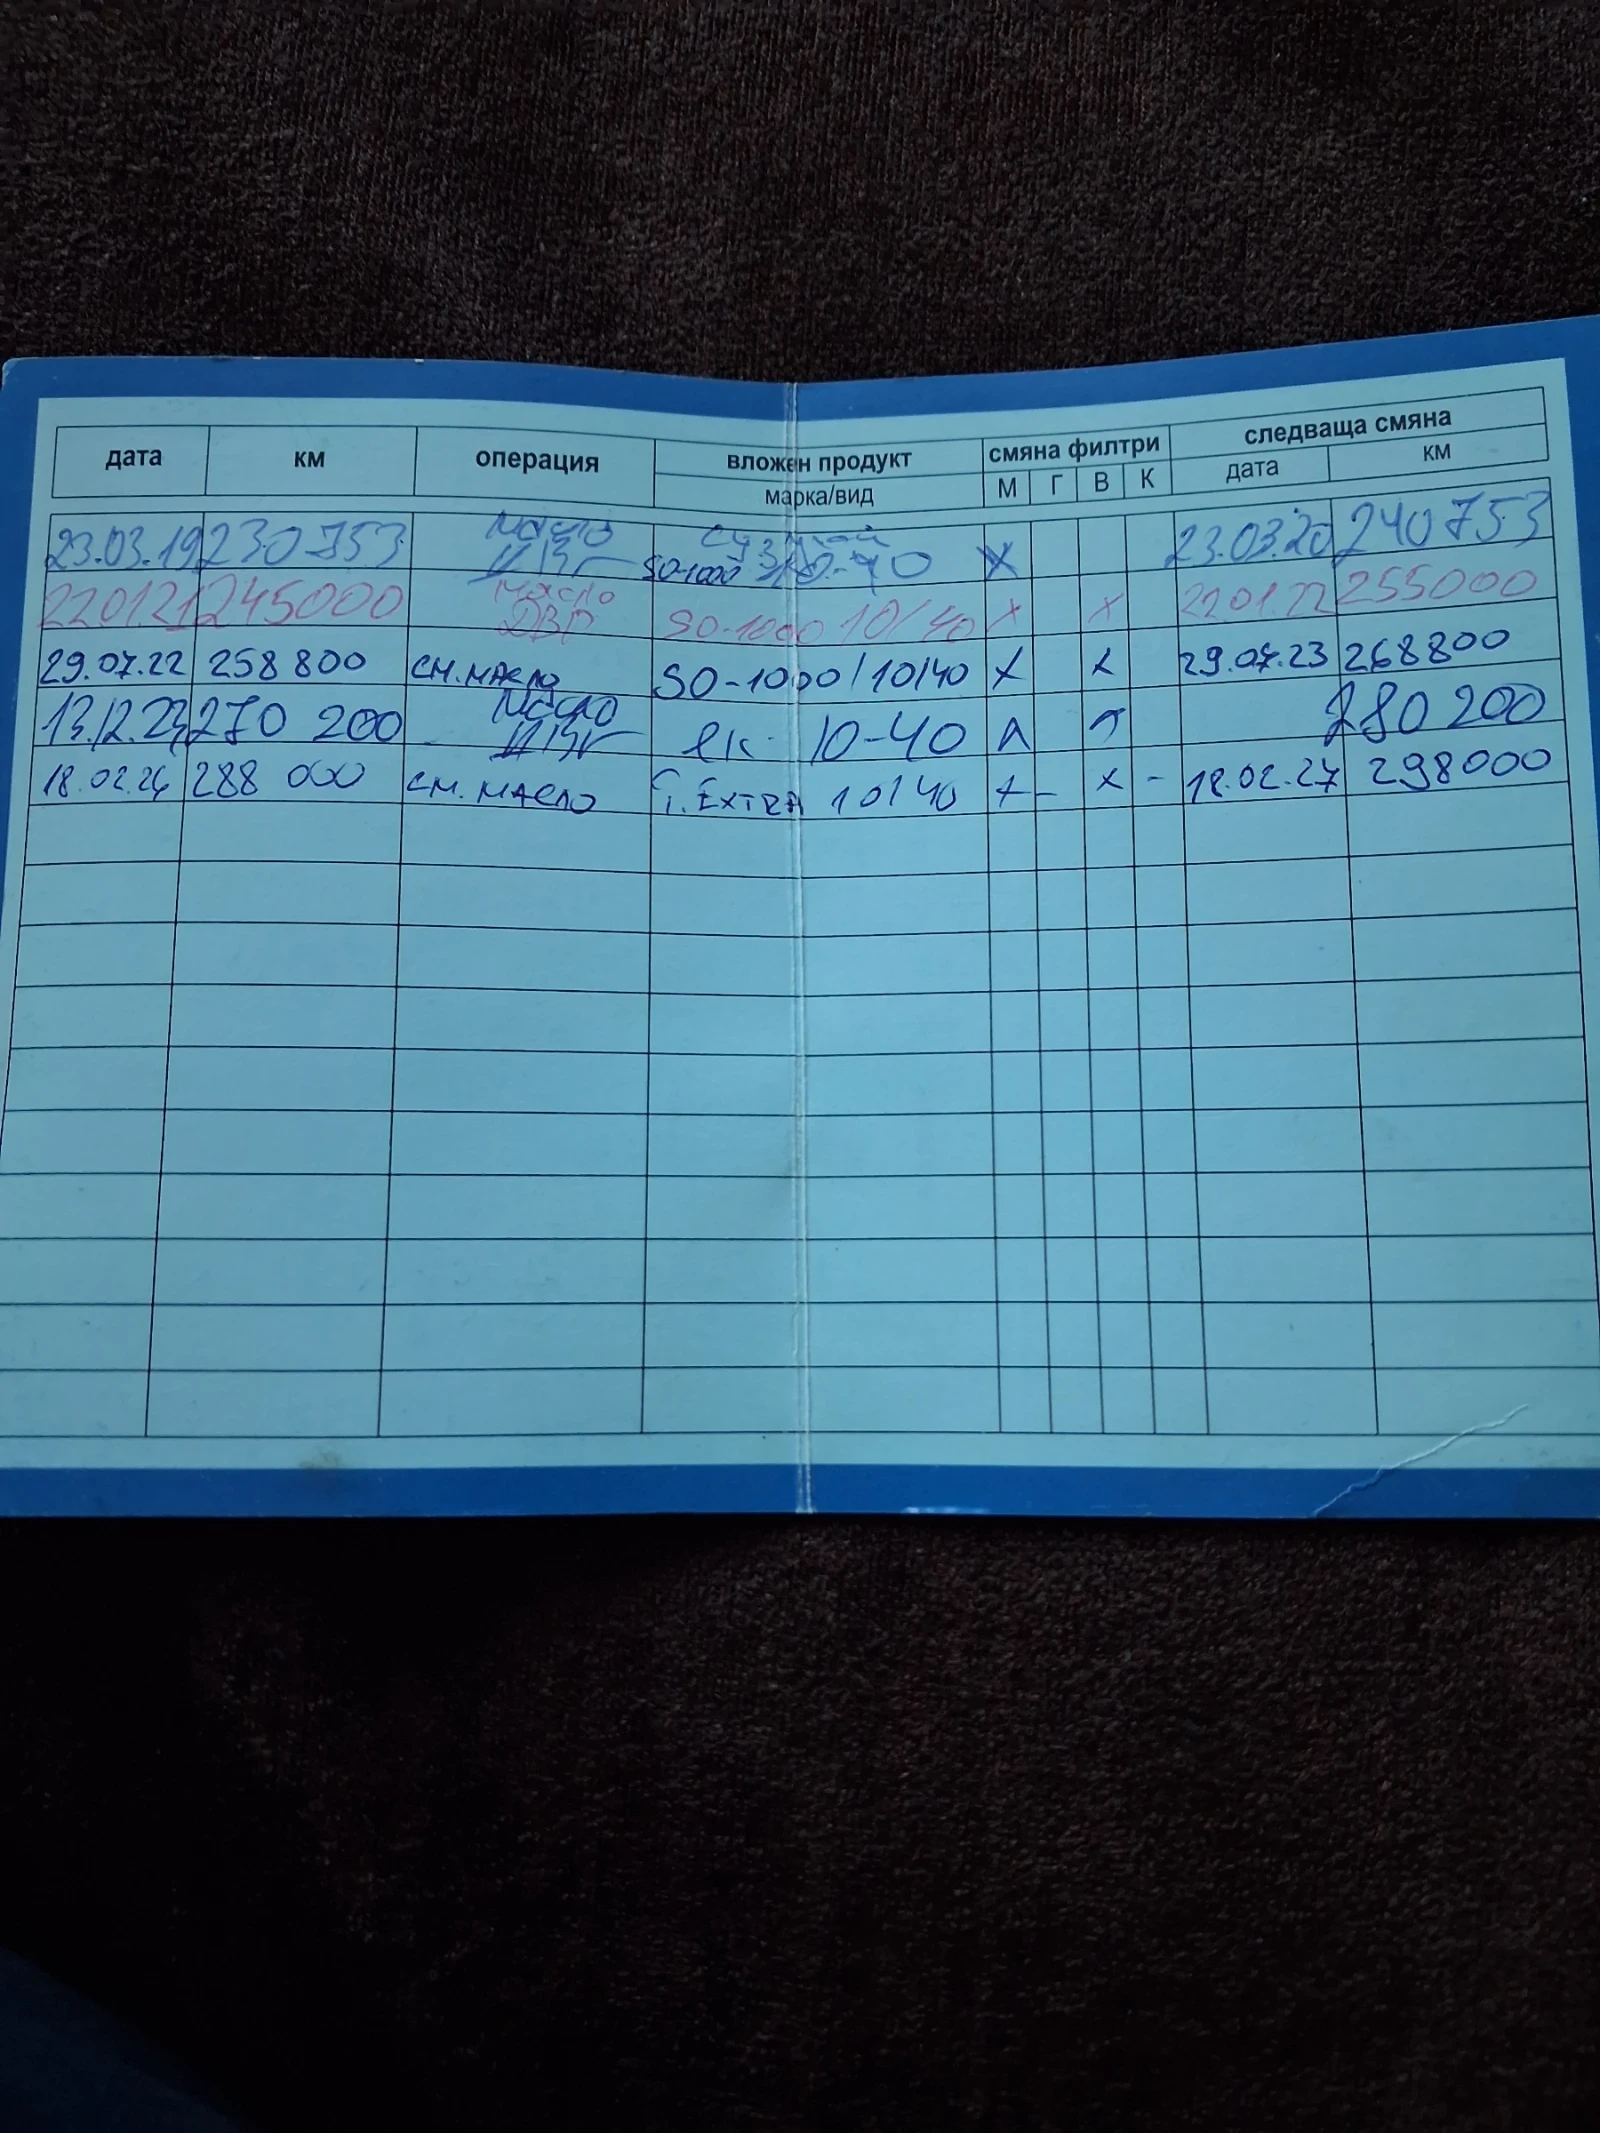 дата км операция вложен продукт смяна филтри следваща смяна
марка/вид М Г В К дата км
23.03.19 230753 Масло двг SO-1000 10-40 X 23.03.20 240753
22.01.21 245000 Масло ДВГ SO-1000 10/40 X X 22.01.22 255000
29.07.22 258 800 см. масло SO-1000/10/40 X X 29.07.23 268800
13.12.23 270 200 Масло двг 10-40 280 200
288 000 см. масло EXTRA 10/40 + – X – 18.02.27 298000